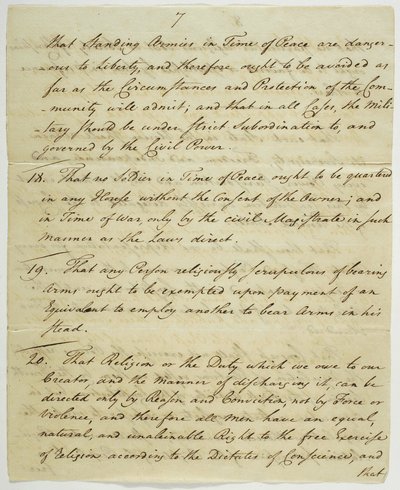 7
that Standing Armies in Time of Peace are danger-
-ous to Liberty, and therefore ought to be avoided as
far as the Circumstances and Protection of the Com-
-munity will admit; and that in all Cases, the Mili-
-tary should be under strict Subordination to, and
governed by the Civil Power.
18. That no Soldier in Time of Peace ought to be quartered
in any House without the Consent of the Owner; and
in Time of War only by the civil Magistrate in such
Manner as the Laws direct.
19. That any Person religiously scrupulous of bearing
Arms ought to be exempted upon payment of an
Equivalent to employ another to bear Arms in his
Stead.
20. That Religion or the Duty which we owe to our
Creator, and the Manner of discharging it, can be
directed only by Reason and Conviction not by Force or
Violence, and therefore all Men have an equal,
natural, and unalienable Right to the free Exercise
of Religion according to the Dictates of Conscience, and
that